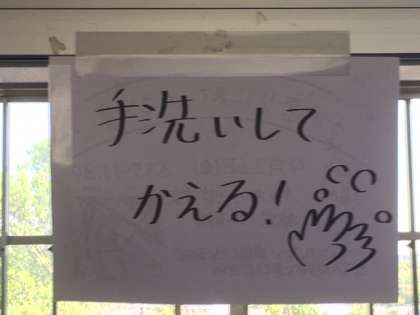 手洗いして
かえる!